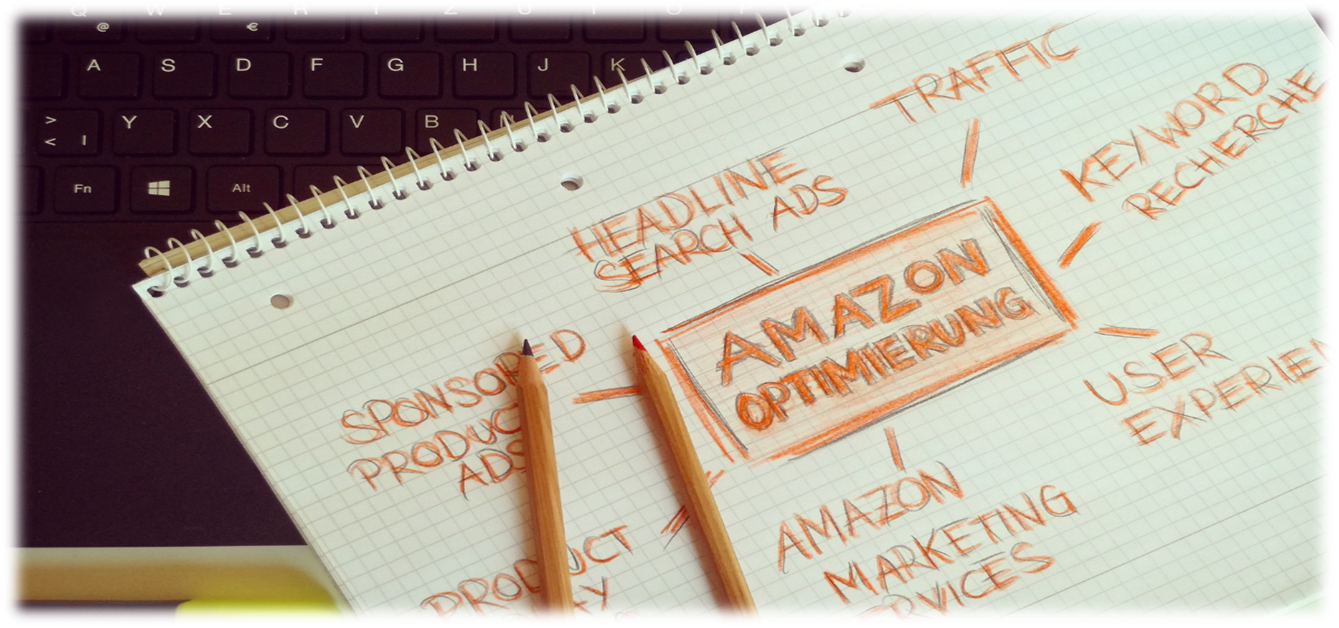 Q W E R T Z U I
@ €
A S D F G H J K
>
< | Y X C V B
Fn Alt
TRAFFIC
KEYWORD
RECHERCHE
HEADLINE
SEARCH ADS
AMAZON
OPTIMIERUNG
SPONSORED
PRODUCT
ADS
USER
EXPERIEN
AMAZON
MARKETING
RVICES
PRODUCT
TY